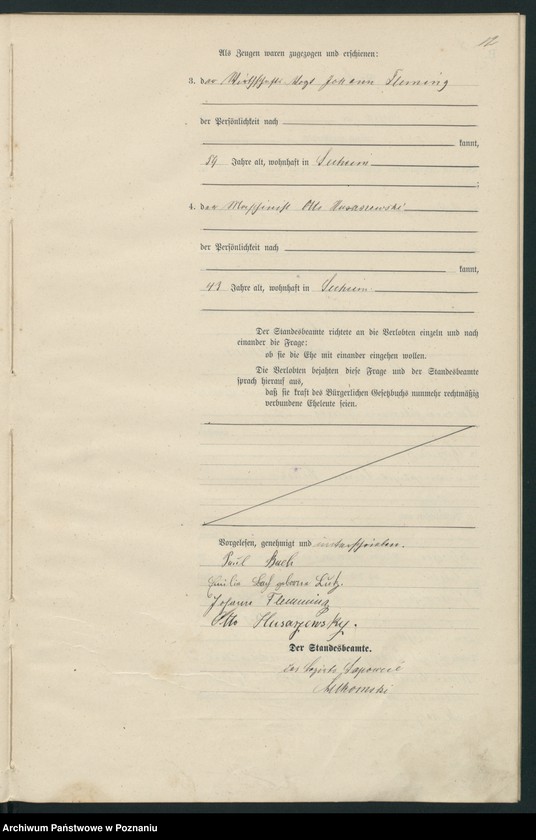 12
Als Zeugen waren zugezogen und erschienen:
3. der Wirthschafts Vogt Johann Fleming
der Persönlichkeit nach
kannt,
59 Jahre alt, wohnhaft in Seeheim
;
4. der Maschinist Otto
der Persönlichkeit nach
kannt,
43 Jahre alt, wohnhaft in Seeheim
Der Standesbeamte richtete an die Verlobten einzeln und nach
einander die Frage:
ob sie die Ehe mit einander eingehen wollen.
Die Verlobten bejahten diese Frage und der Standesbeamte
sprach hierauf aus,
daß sie kraft des Bürgerlichen Gesetzbuchs nunmehr rechtmäßig
verbundene Eheleute seien.
Vorgelesen, genehmigt und unterschrieben.
Paul
geborene Lutz.
Johann Flemming
Otto Husarzewsky.
Der Standesbeamte.
Archiwum Państwowe w Poznaniu